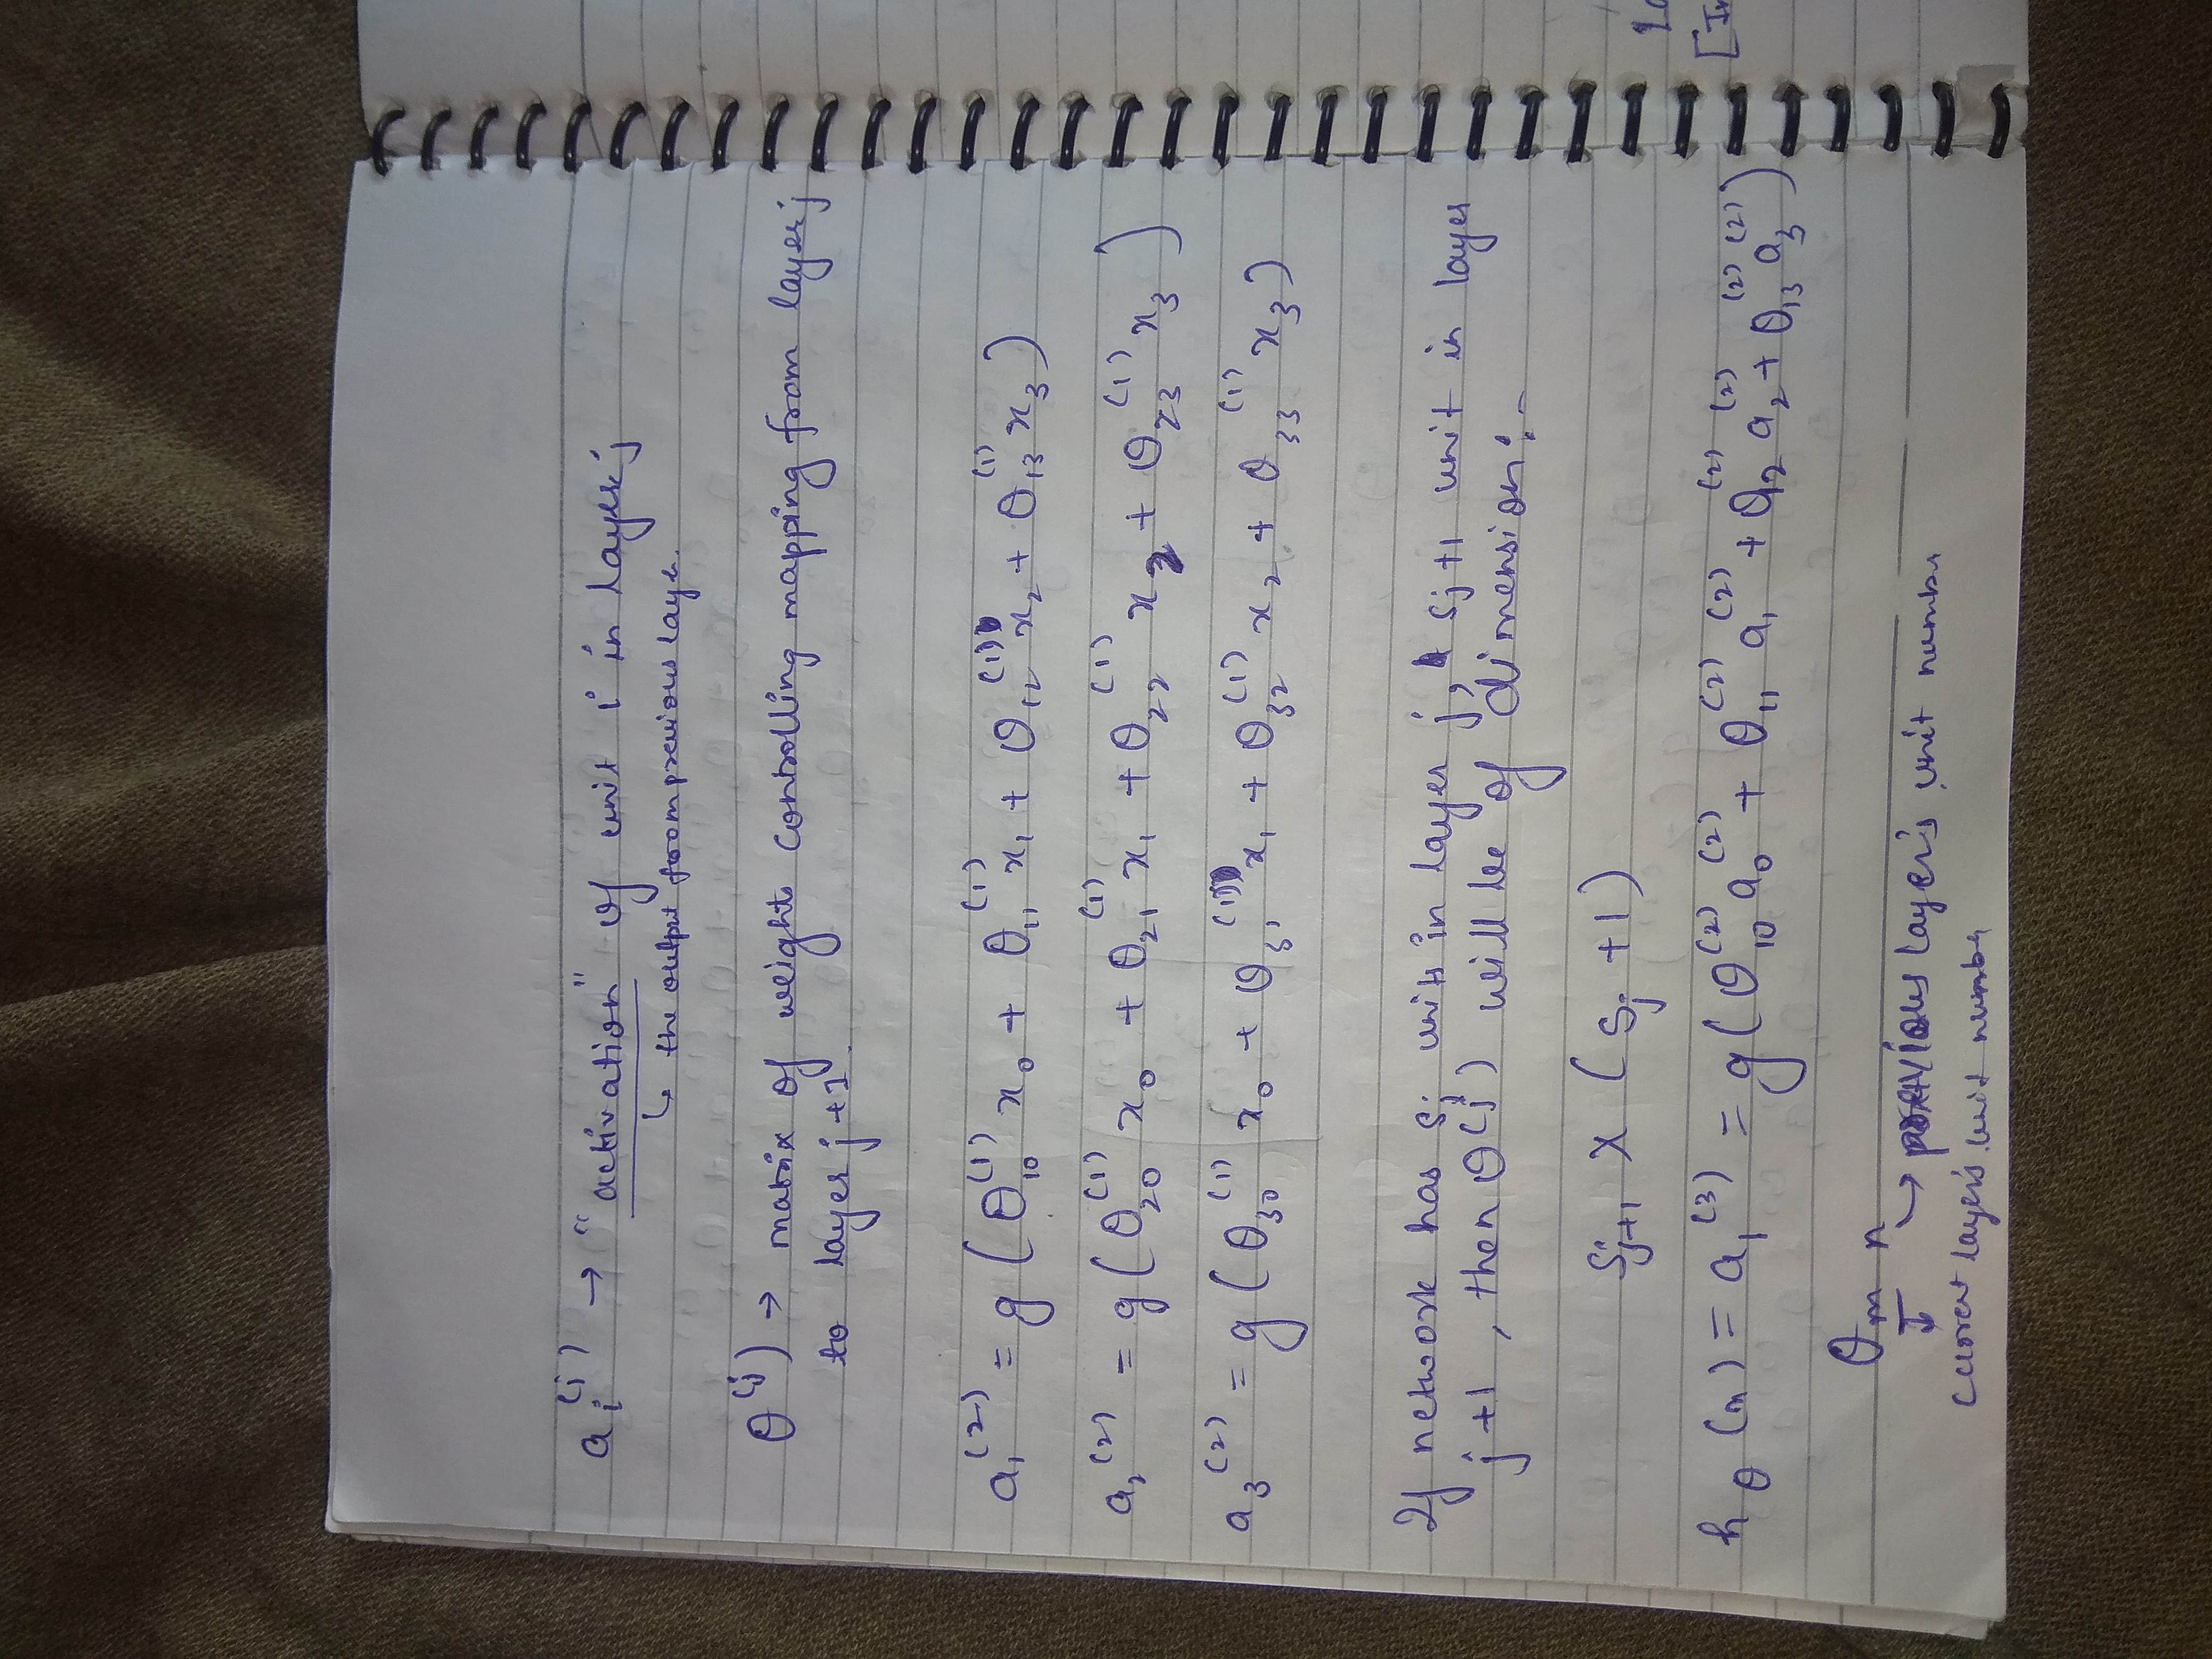 aᵢ⁽ʲ⁾ → "activation" of unit i in layer j
↳ the output from previous layer.
θ⁽ʲ⁾ → matrix of weight controlling mapping from layer j
to layer j+1.
a₁⁽²⁾ = g(θ₁₀⁽¹⁾x₀ + θ₁₁⁽¹⁾x₁ + θ₁₂⁽¹⁾x₂ + θ₁₃⁽¹⁾x₃)
a₂⁽²⁾ = g(θ₂₀⁽¹⁾x₀ + θ₂₁⁽¹⁾x₁ + θ₂₂⁽¹⁾x₂ + θ₂₃⁽¹⁾x₃)
a₃⁽²⁾ = g(θ₃₀⁽¹⁾x₀ + θ₃₁⁽¹⁾x₁ + θ₃₂⁽¹⁾x₂ + θ₃₃⁽¹⁾x₃)
If network has Sj units in layer j, Sj+1 unit in layer
j+1, then θ⁽ʲ⁾ will be of dimension:-
Sj+1 x (Sj +1)
hθ(n) = a₁⁽³⁾ = g(θ₁₀⁽²⁾a₀⁽²⁾ + θ₁₁⁽²⁾a₁⁽²⁾ + θ₁₂⁽²⁾a₂⁽²⁾ + θ₁₃⁽²⁾a₃⁽²⁾)
θ m n
→ previous layer's unit number
current layer's unit number